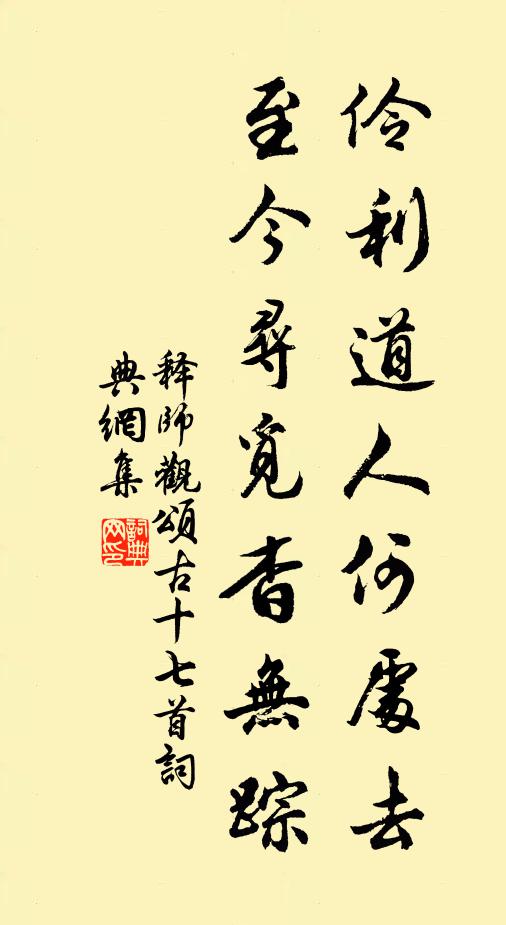 伶利道人何處去
至今尋覓杳無踪
释師觀頌古十七首詞
典網集
詞典网印